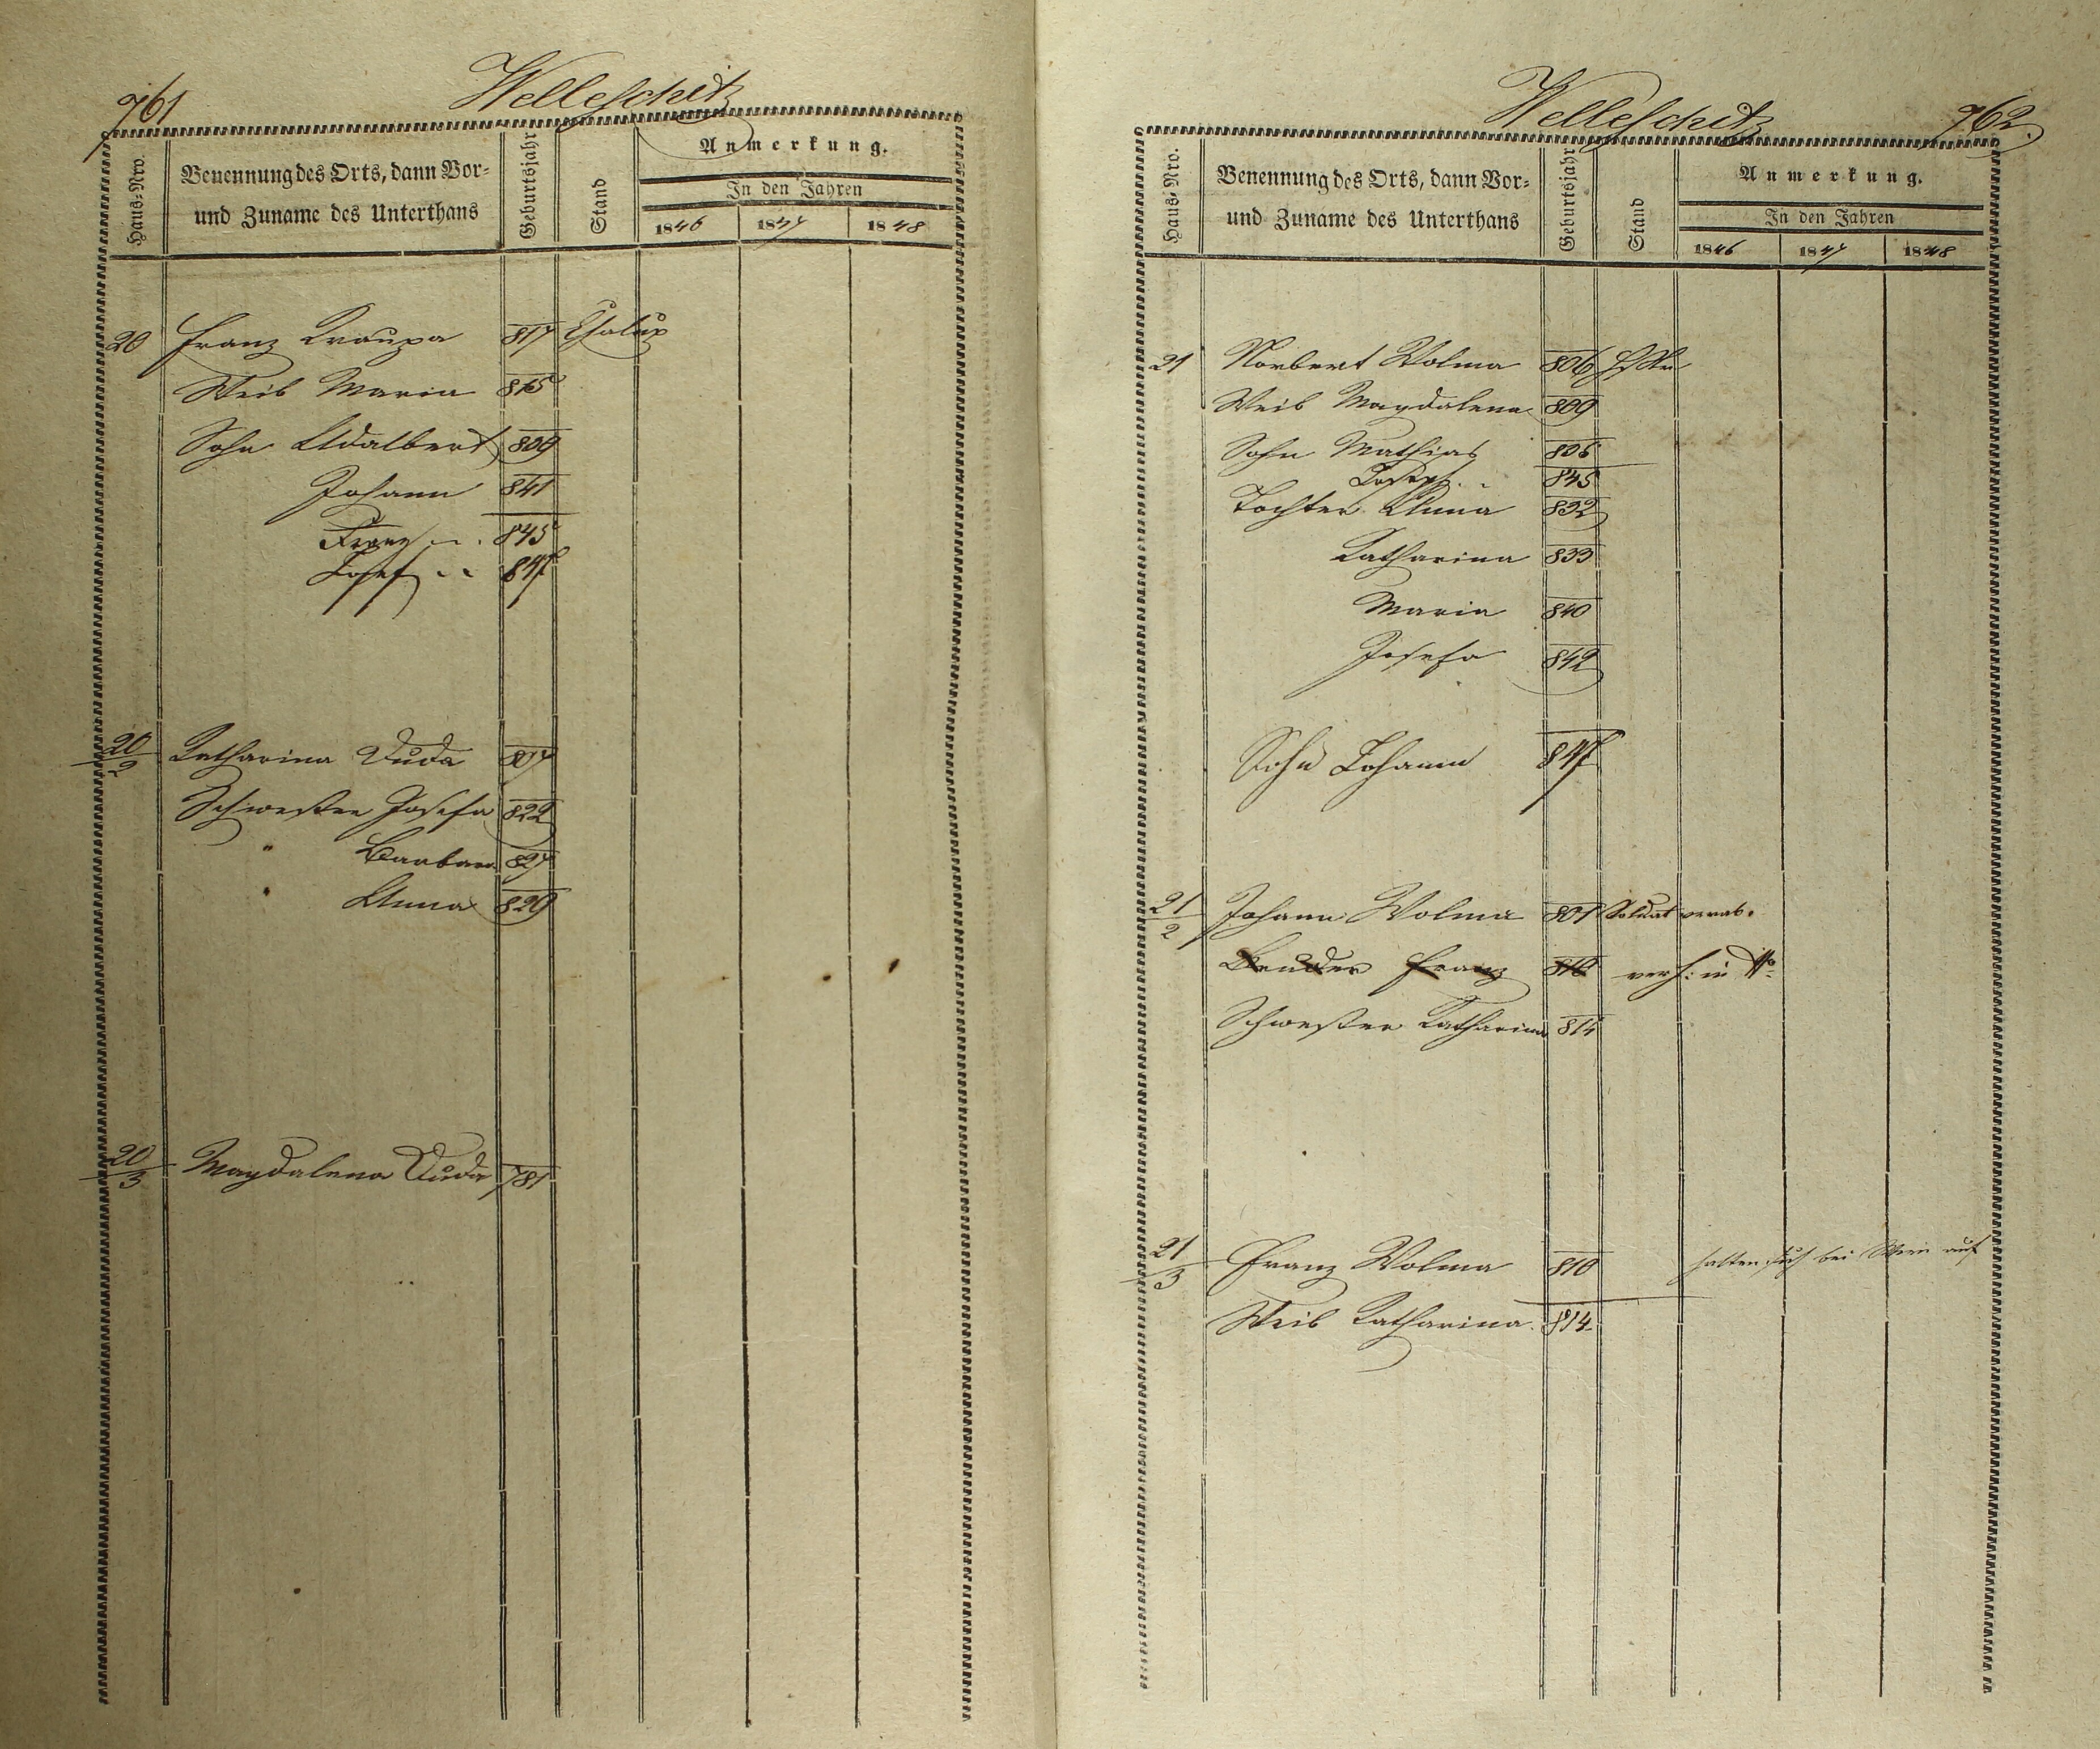 761
Welleschitz
Haus-Nro.
Benennung des Orts, dann Vor-
und Zuname des Unterthans
Geburtsjahr
Stand
Anmerkung.
In den Jahren
1846 1847 1848
20 Franz Kraupa 817 Chalup
Weib Maria 815
Sohn Adalbert 809
Johann 841
Franz 845
Josef 847
20/2 Katharina Duda 817
Schwester Josefa 822
" Barbara 827
" Anna 829
20/3 Magdalena Duda 781
Welleschitz
762.
Haus-Nro.
Benennung des Orts, dann Vor-
und Zuname des Unterthans
Geburtsjahr
Stand
Anmerkung.
In den Jahren
1846 1847 1848
21 Norbert Wolma 806
Weib Magdalena 809
Sohn Mathias 836
Joseph 845
Tochter Anna 832
Katharina 833
Maria 840
Josefa 842
Sohn Johann 847
21/2 Johann Wolma 801 Soldat verab.
Bruder Franz 810 verh: in
Schwester Katharina 814
21/3 Franz Wolma 810 halten sich bei Wien auf
Weib Katharina 814